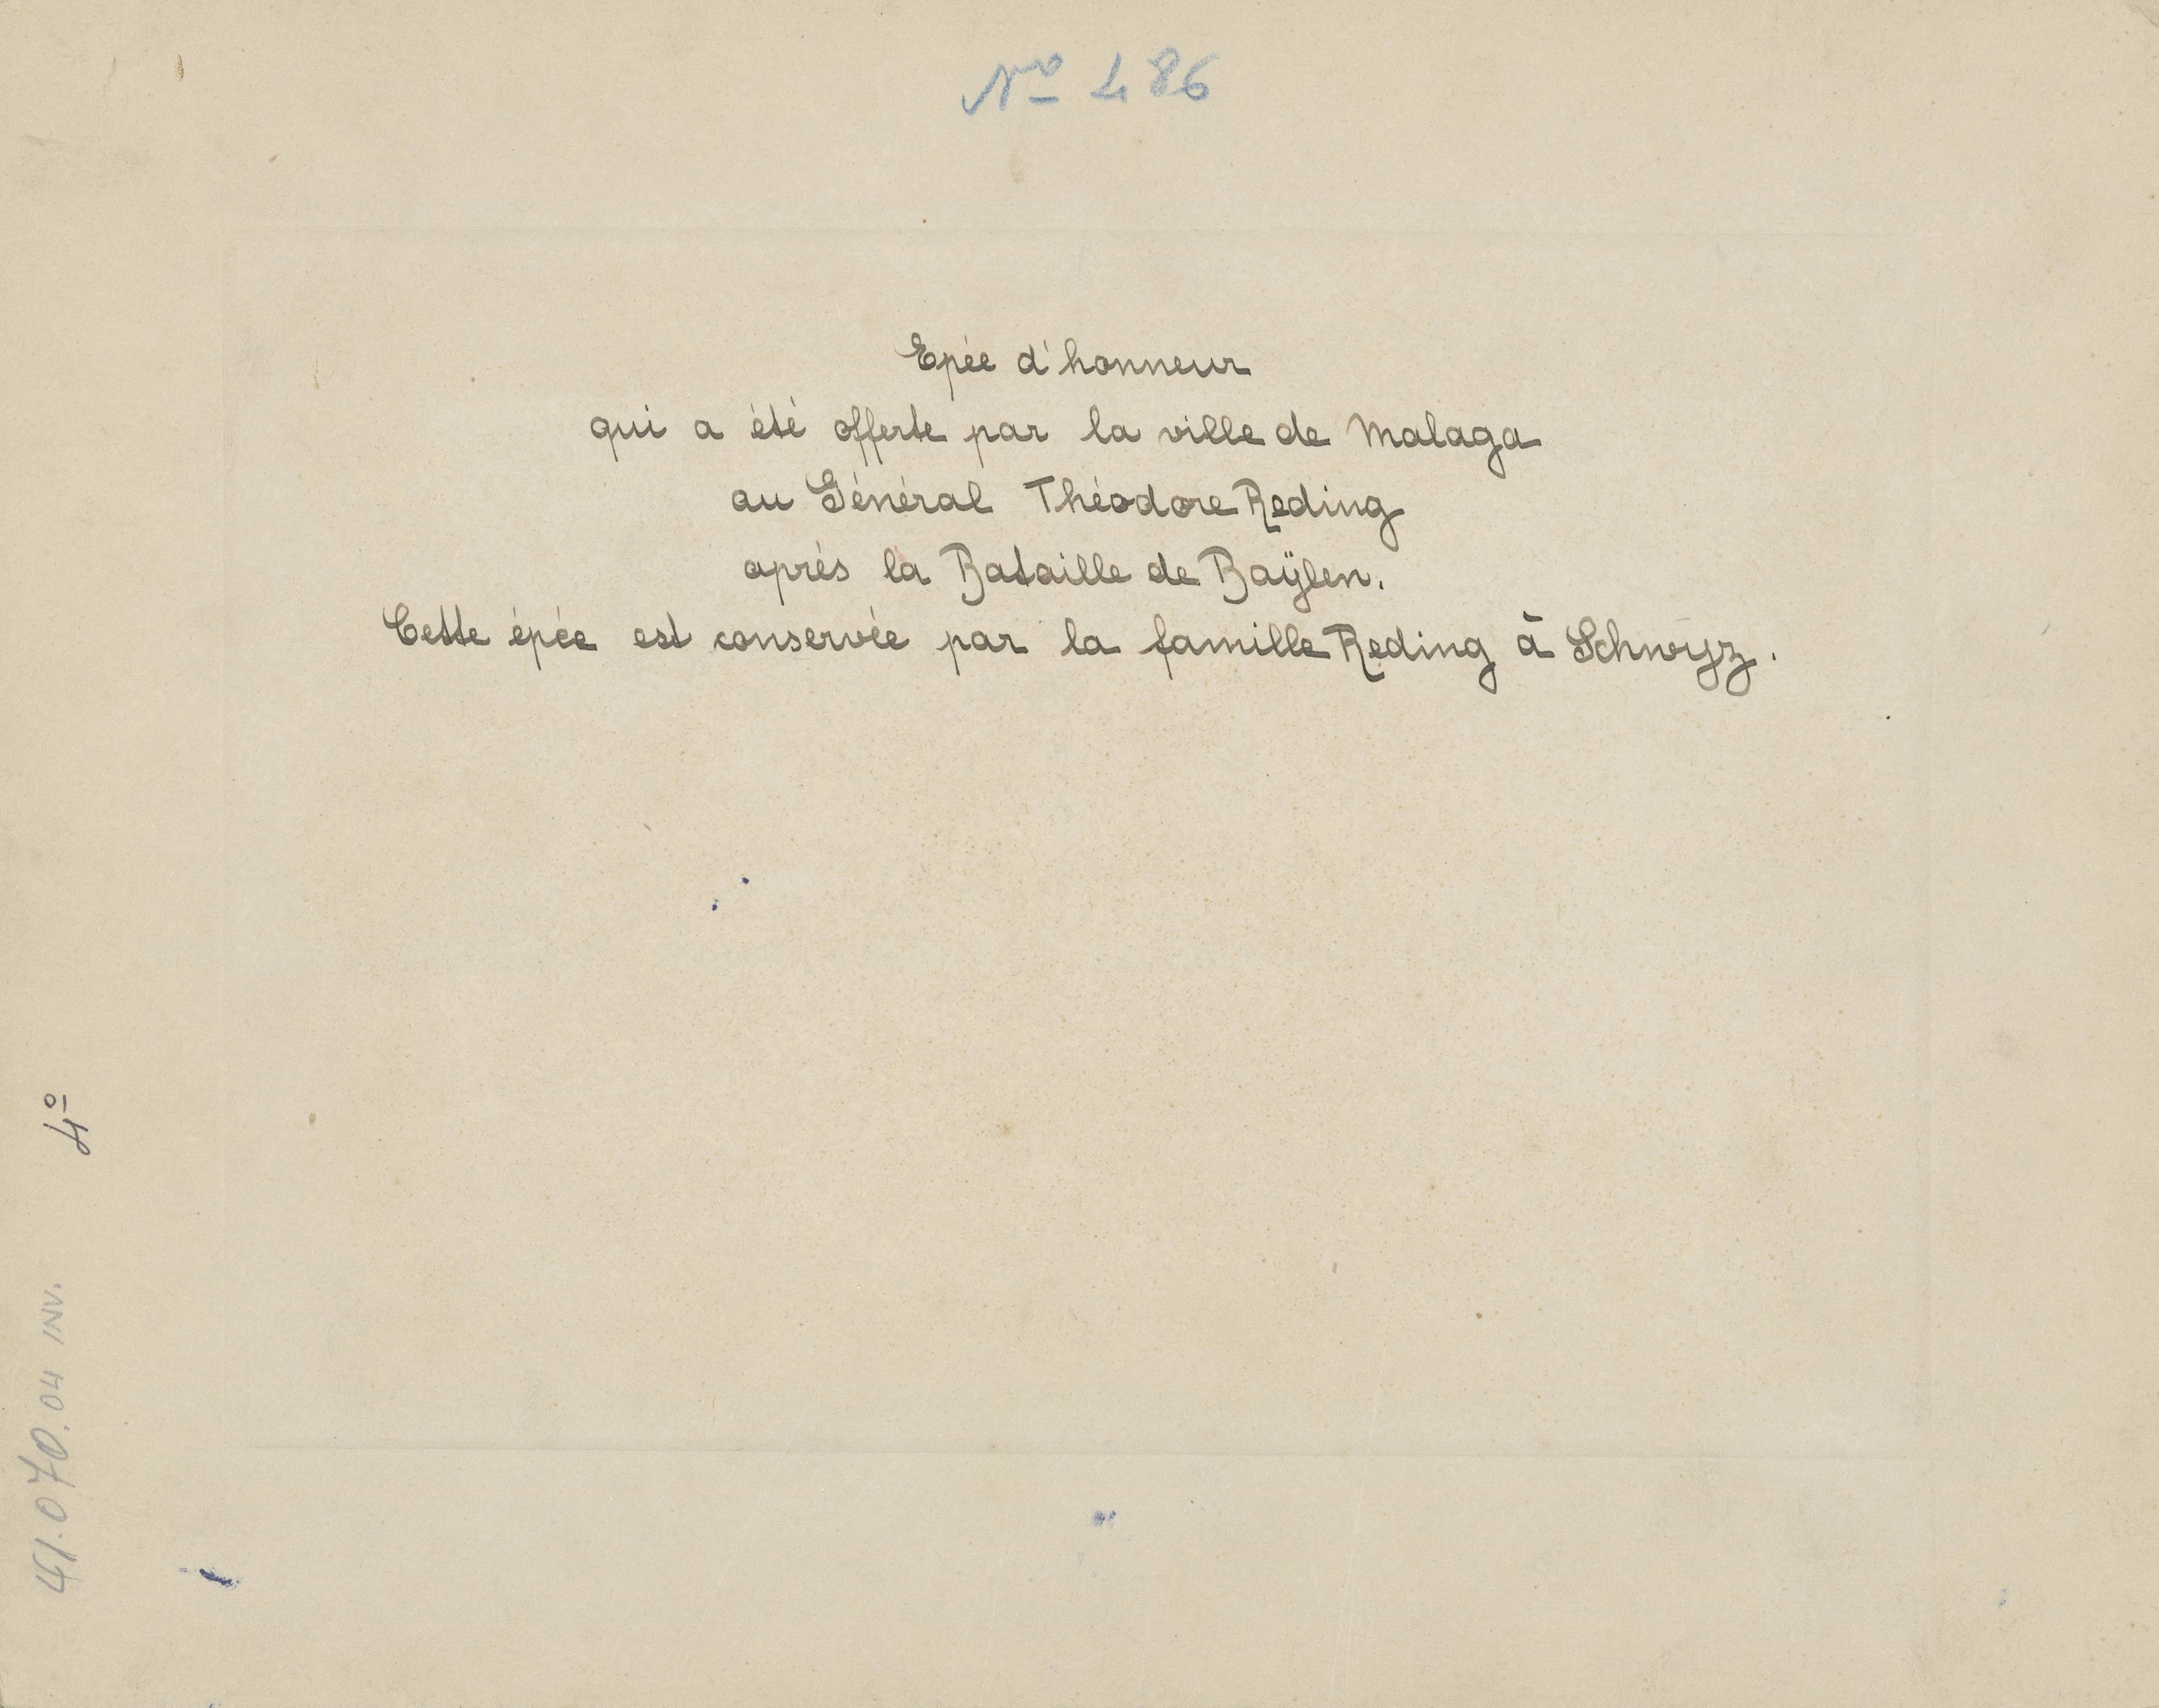 Nº 486
Epée d'honneur
qui a été offerte par la ville de Malaga
au Général Théodore Reding
après la Bataille de Baÿlen.
Cette épée est conservée par la famille Reding à Schwyz.
4º
41.070.04 INV.